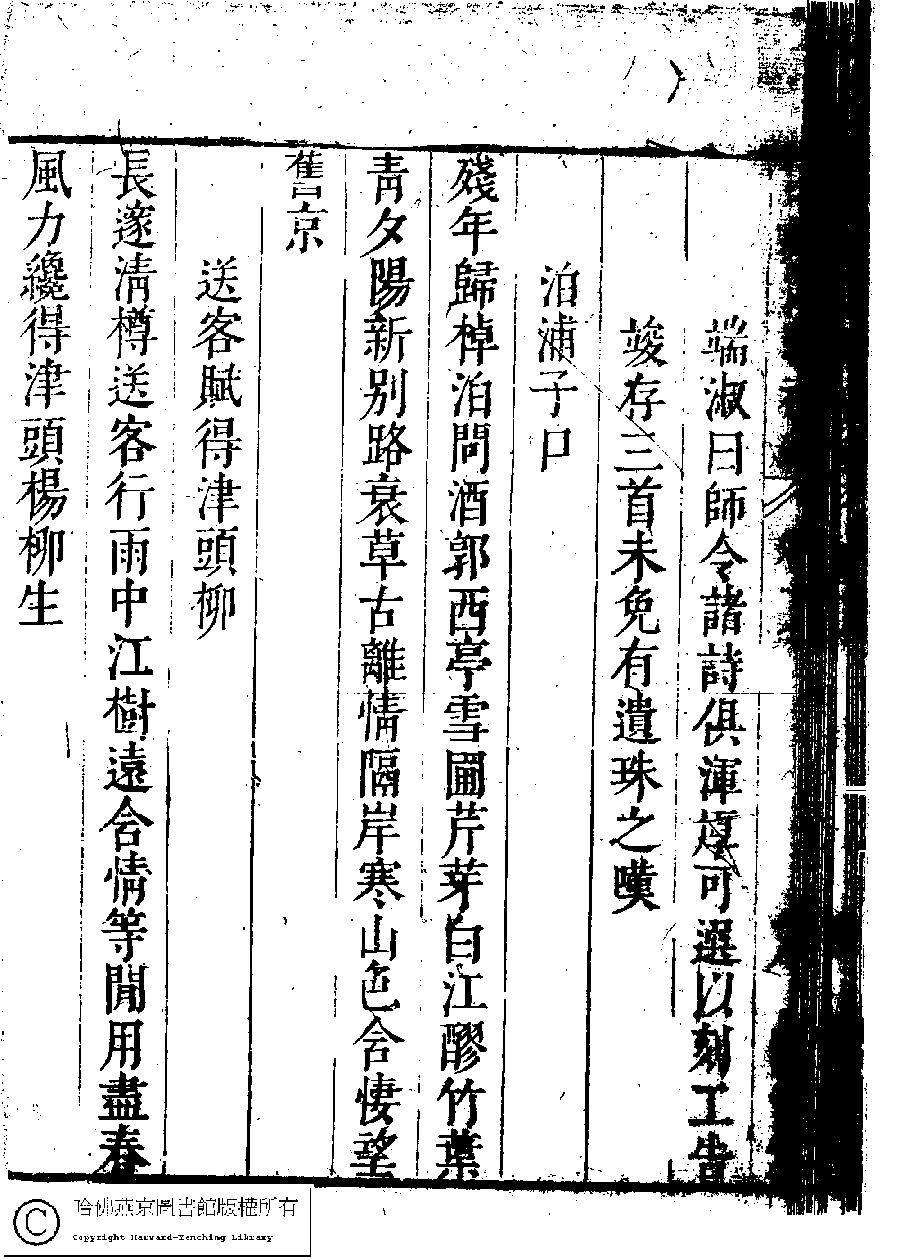 端淑曰師令諸詩俱渾厚可選以刻工告
竣存三首未免有遺珠之嘆
泊浦子口
殘年歸棹泊問酒郭西亭雪圃芹芽白江醪竹葉
青夕陽新别路衰草古離情隔岸寒山色含悽望
舊京
送客賦得津頭柳
長邃清樽送客行雨中江樹遠含情等閒用盡春
風力纔得津頭楊柳生
哈佛燕京圖書館版權所有
Copyright Harvard-Yenching Library